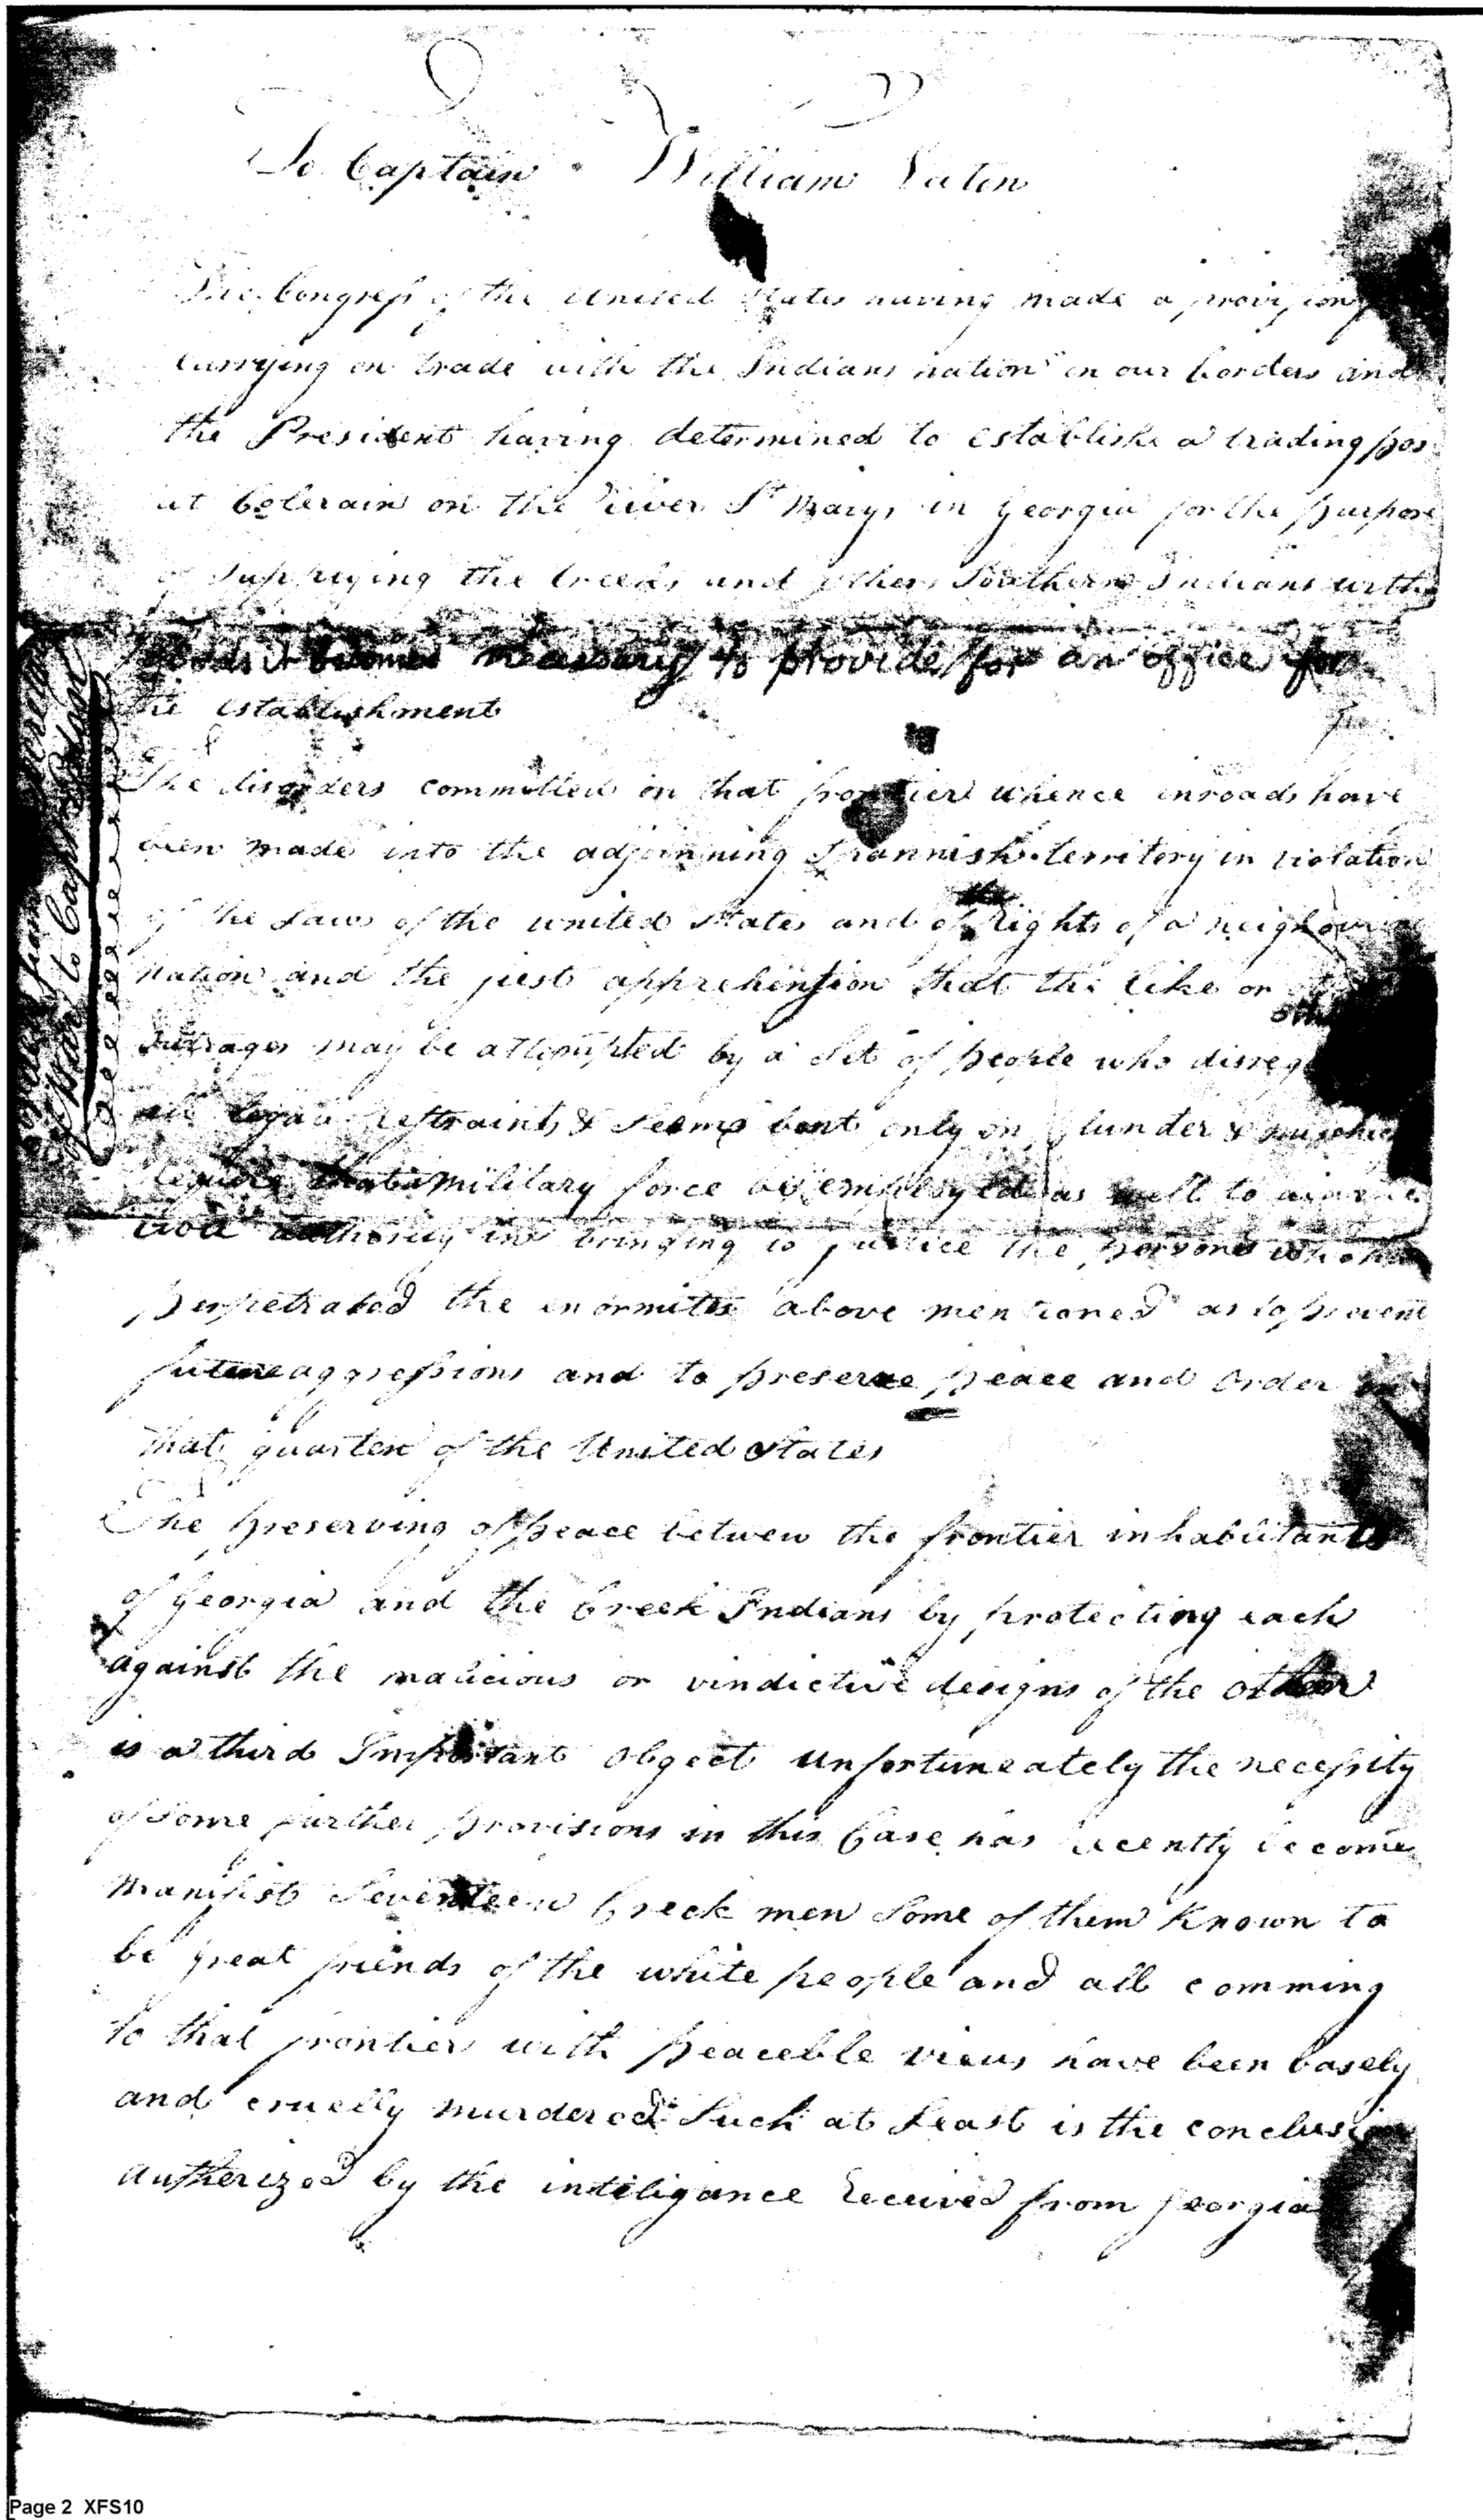 To Captain William Eaton
The Congress of the United States having made a provision
carrying on trade with the Indians nation in our borders and
the President having determined to establish a trading pos
at Colerain on the river St Marys in Georgia for the purpose
of Supplying the Creeks and others Southern Indians with
goods it becomes necessary to provide for an office for
the establishment
The disorders committed on that frontier whence inroads have
been made into the adjoinning Spannish territory in violation
of the Laws of the united States and of the rights of a neighbouring
nation and the just apprehension that the like or
other
outrages may be attempted by a Set of people who disreg
all legal restraints & Seems bent only on plunder & mischief
require that military force be employed as well to
civil authority in bringing to justice the persons who
perpetrated the enormites above mentioned as to prevent
future aggressions and to preserve peace and order in
that quarter of the United States
The preserving of peace betwen the frontier inhabitants
of Georgia and the Creek Indians by protecting each
against the malicious or vindictive designs of the other
is a third Important object unfortuneately the necessity
of Some further provisions in this Case has recently become
manifest Seventeen Creek men Some of them Known to
be great friends of the white people and all comming
to that frontier with peaceble views have been basely
and cruelly murdered Such at Least is the conclusion
autherized by the inteligance Received from georgia
of War to Captn
Page 2 XFS10